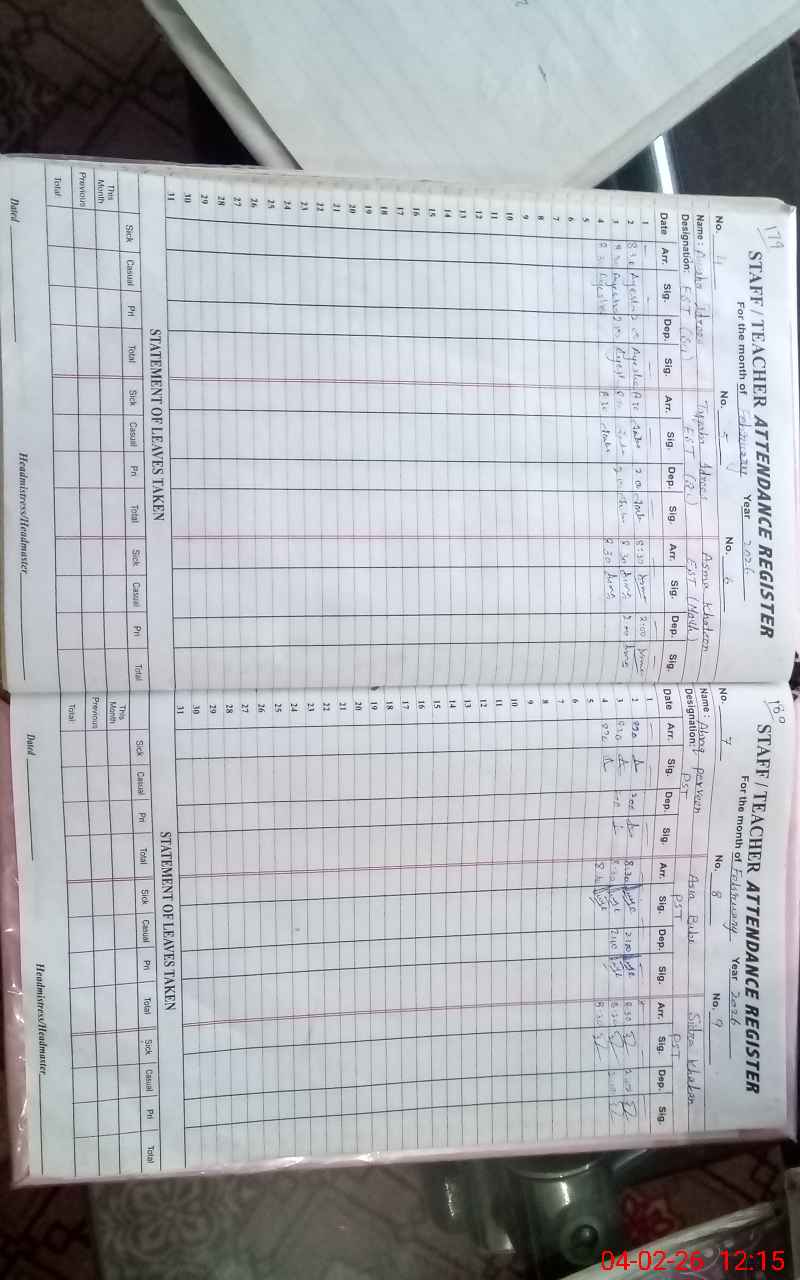 179
STAFF / TEACHER ATTENDANCE REGISTER
For the month of February Year 2026
No. 4 No. 5 No. 6
Name: Adrees Adrees Asma Khatoon
Designation: EST EST EST (Math)
Date Arr. Sig. Dep. Sig. Arr. Sig. Dep. Sig. Arr. Sig. Dep. Sig.
1
2 8:30 Ayesha 2:00 Ayesha 8:30 2:00 8:30 2:00
3 8:30 Ayesha 2:00 Ayesha 8:30 2:00 8:30 2:00
4 8:30 Ayesha 8:30 8:30
5
6
7
8
9
10
11
12
13
14
15
16
17
18
19
20
21
22
23
24
25
26
27
28
29
30
31
STATEMENT OF LEAVES TAKEN
Sick Casual Pri Total Sick Casual Pri Total Sick Casual Pri Total
This Month
Previous
Total
Dated Headmistress/Headmaster
180
STAFF / TEACHER ATTENDANCE REGISTER
For the month of February Year 2026
No. 7 No. 8 No. 9
Name: Perveen Asia Bibi Sidra Khaban
Designation: PST PST PST
Date Arr. Sig. Dep. Sig. Arr. Sig. Dep. Sig. Arr. Sig. Dep. Sig.
1
2 830 200 8:30 2:00 8:30 2:00
3 830 200 8:30 2:00 8:30 2:00
4 830 8:30 8:30
5
6
7
8
9
10
11
12
13
14
15
16
17
18
19
20
21
22
23
24
25
26
27
28
29
30
31
STATEMENT OF LEAVES TAKEN
Sick Casual Pri Total Sick Casual Pri Total Sick Casual Pri Total
This Month
Previous
Total
Dated Headmistress/Headmaster
04-02-26 12:15